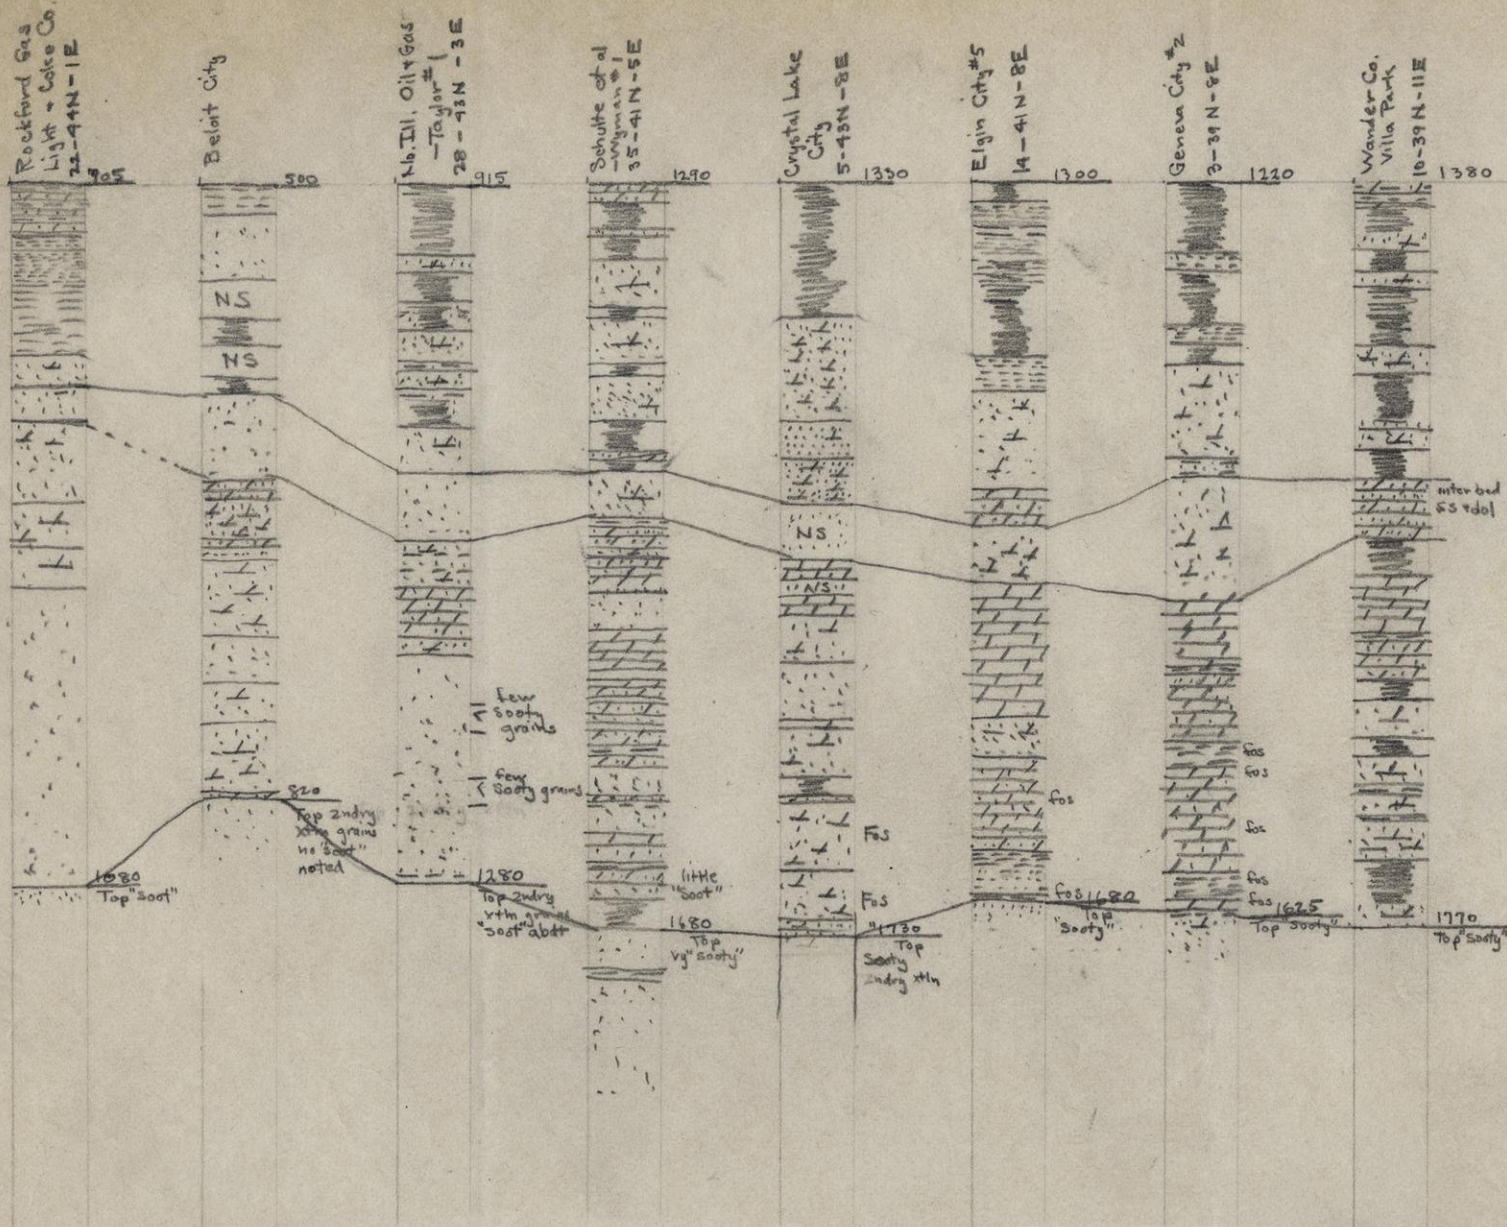 Rockford Gas
Light + Coke Co.
22-44N-1E
905
Beloit City
500
No. Ill. Oil + Gas
-Taylor #1
28-43N-3E
915
Schulte et al
-Wyman #1
35-41N-5E
1290
Crystal Lake
City
5-43N-8E
1330
Elgin City #5
14-41N-8E
1300
Geneva City #2
3-39N-8E
1220
Wander Co.
Villa Park
10-39N-11E
1380
NS
NS
inter bed
ss + dol
NS
NS
few
sooty
grains
few
sooty grains
fos
fos
fos
fos
Fos
820
Top 2ndry
xtln grains
no "soot"
noted
1080
Top "Soot"
1280
Top 2ndry
xtln grains
"soot" abdt
little
"soot"
1680
Top
vy "sooty"
Fos
1730
Top
Sooty
2ndry xtln
fos 1680
Top
"sooty"
fos
fos
1625
Top "sooty"
1770
Top "sooty"